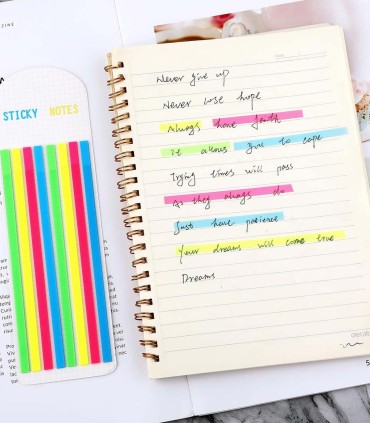 STICKY NOTES
Never give up
Never lose hope
Always have faith
it allows you to cope
Trying times will pass
As they always do
Just have patience
Your dreams will come true
Dreams